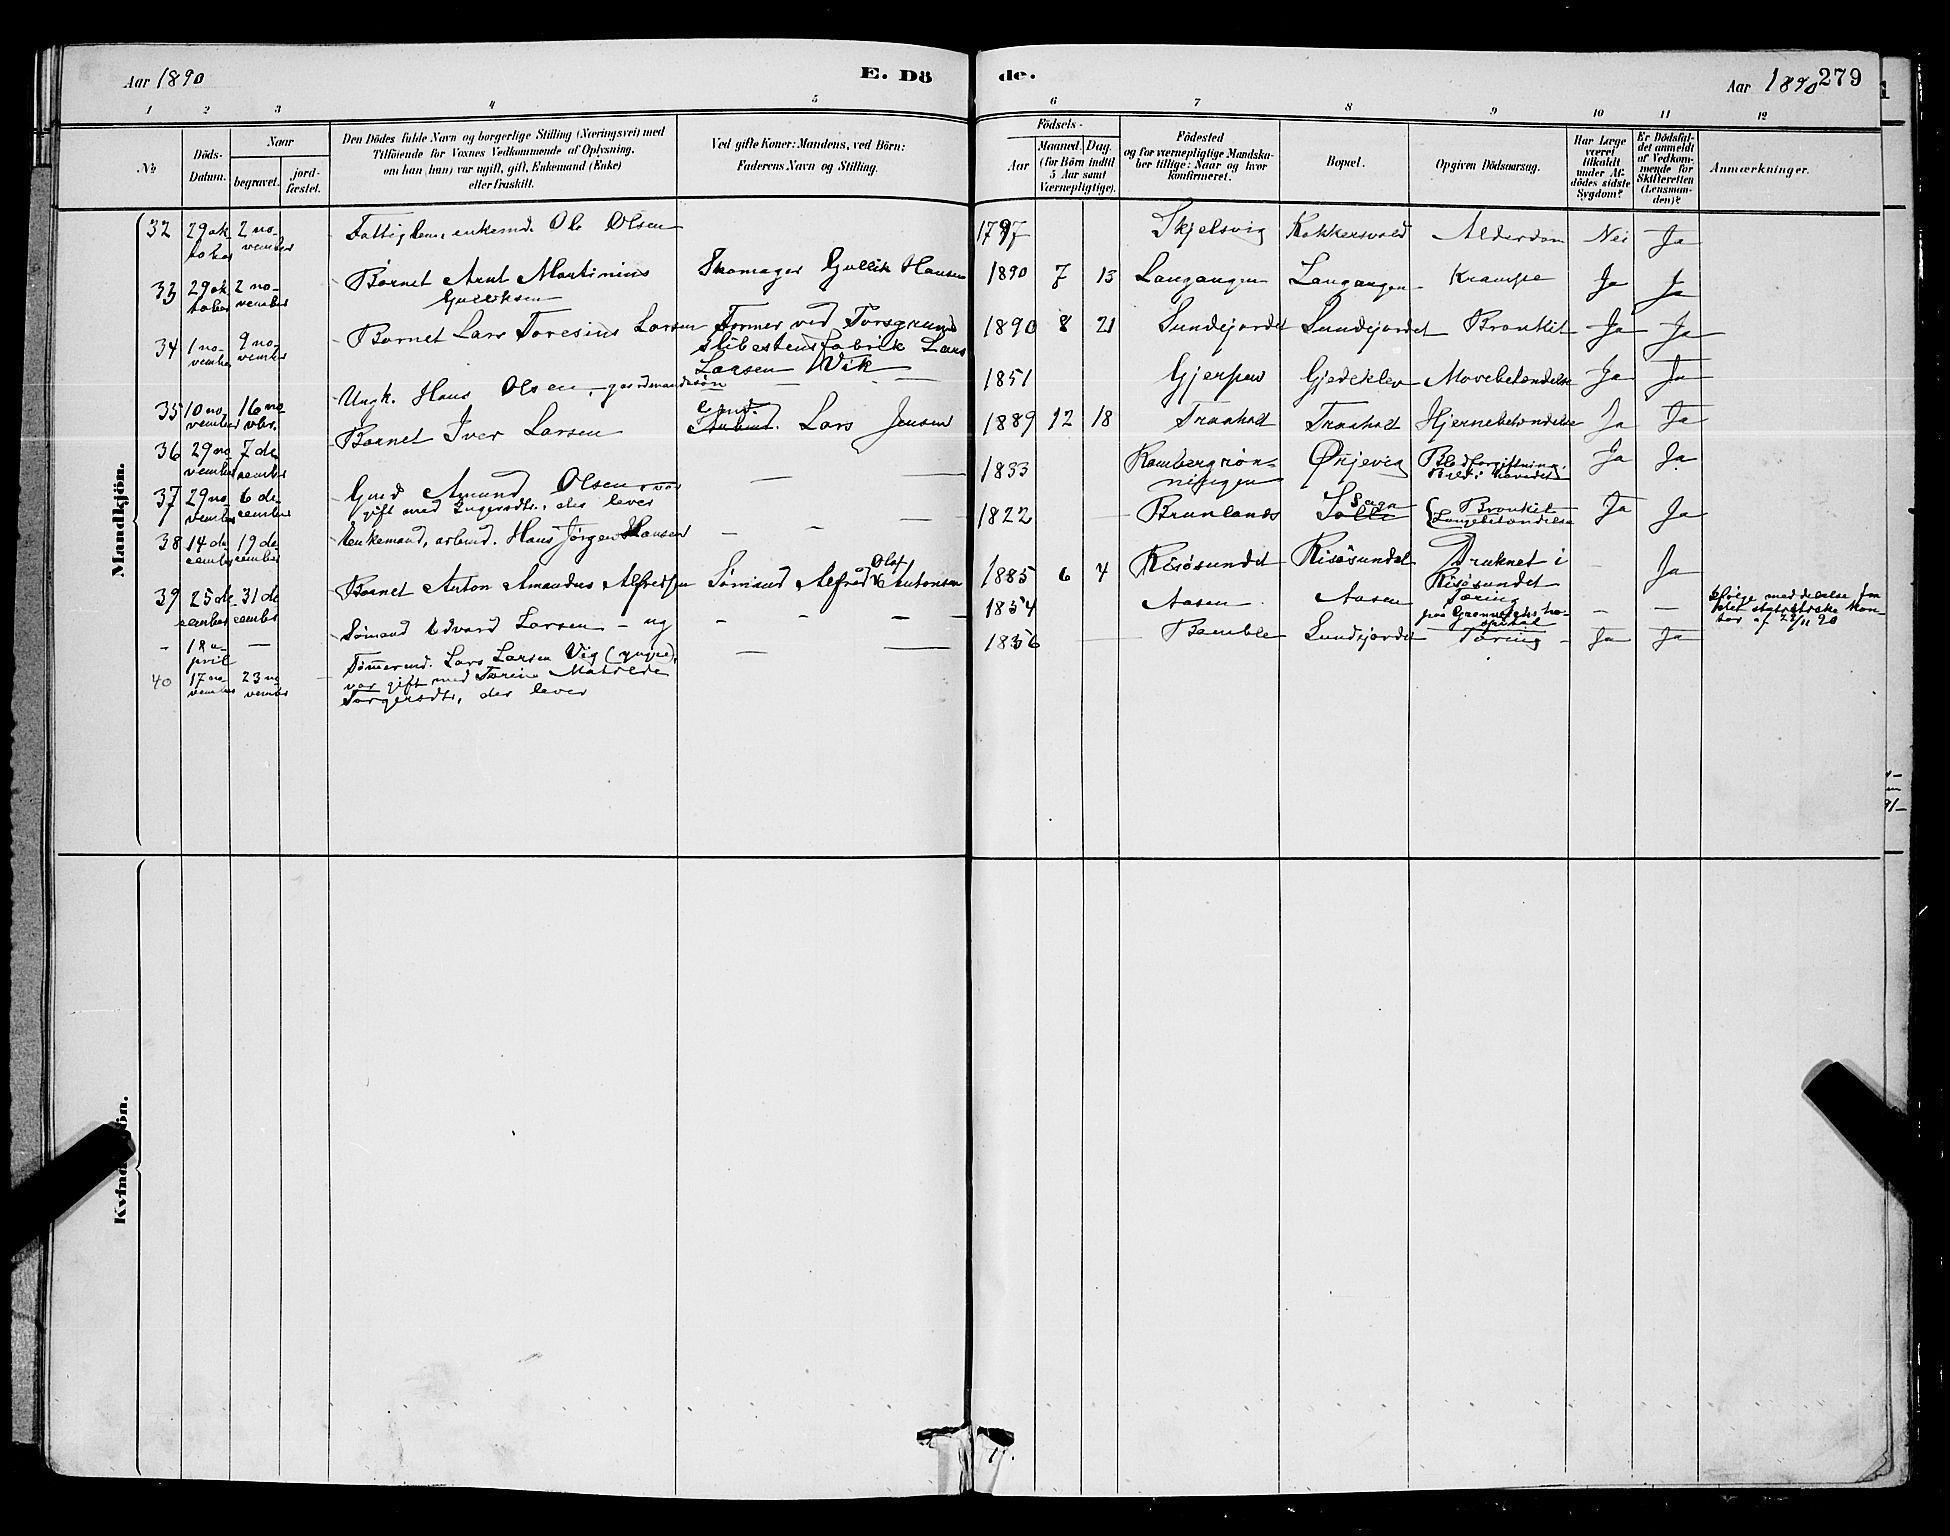 Aar 1890
E. Dö
de.
Aar 1890 279
1 2 3 4 5 6 7 8 9 10 11 12
No
Döds-
Datum.
Naar
begravet.
jord-
fæstet.
Den Dödes fulde Navn og borgerlige Stilling (Næringsvei) med
Tilföiende for Voxnes Vedkommende af Oplysning,
om han (hun) var ugift, gift, Enkemand (Enke)
eller fraskilt.
Ved gifte Koner: Mandens, ved Börn:
Faderens Navn og Stilling.
Födsels-
Aar
Maaned. Dag.
(for Börn indtil
5 Aar samt
Værnepligtige).
Födested
og for værnepligtige Mandska-
ber tillige: Naar og hvor
konfirmeret.
Bopæl.
Opgiven Dödsaarsag.
Har Læge
været
tilkaldt
under Af-
dödes sidste
Sygdom?
Er Dödsfal-
det anmeldt
af Vedkom-
mende for
Skifteretten
(Lensman-
den)?
Anmærkninger.
Mandkjön.
32 29 ok-
tober 2 no-
vember Fattiglem, enkemd. Ole Olsen 1797 Skjelsvig Kokkersvold Alderdom Nei Ja
33 29 ok-
tober 2 no-
vember Barnet Arnt Martinius
Gulliksen Skomager Gullik Hansen 1890 7 13 Langangen Langangen Krampe Ja Ja
34 1 no-
vember 9 no-
vember Barnet Lars Toresius Larsen Former ved Porsgrund
slibestensfabrik Lars
Larsen Vik 1890 8 21 Sundejordet Sundejordet Bronkit Ja Ja
35 10 no-
vember 16 no-
vbr. Ungk. Hans Olsen, gaardmandssøn — — 1851 Gjerpen Gjedeklev Mavebetændelse Ja Ja
36 29 no-
vember 7 de-
cember Barnet Iver Larsen Gmd.
Arbmd. Lars Jensen 1889 12 18 Traaholt Traaholt Hjernebetændelse Ja Ja
37 29 no-
vember 6 de-
cember Gmd Amund Olsen var
gift med Ingersdtr., der lever — — 1833 Ønjevig Blodforgiftning. Ja Ja
38 14 de-
cember 19 de-
cember Enkemand, arbmd. Hans Jørgen Hansen — — — 1822 — Brunlands Saga
Bronkit
Lungebetændelse Ja Ja
39 25 de-
cember 31 de-
cember Barnet Anton Amandus Alfredsen Sømand Alfred Olaf Antonsen 1885 6 4 Risøsundet Risøsundet Druknet i
Risøsundet - Ja
- 18 a-
pril — Sømand Edvard Larsen - ug - - - 1854 Aasen Aasen Tæring
paa Hospital — — ifølge meddelelse fra
det statistiske kon-
tor af 22/11 90
40 17 no-
vember 23 no-
vember Tømmermd. Lars Larsen Vig (yngre),
var gift med Torine Matilde
Torgersdtr, der lever — — 1856 — Bamble Sundejordet Tæring Ja Ja
Kvindekjön.